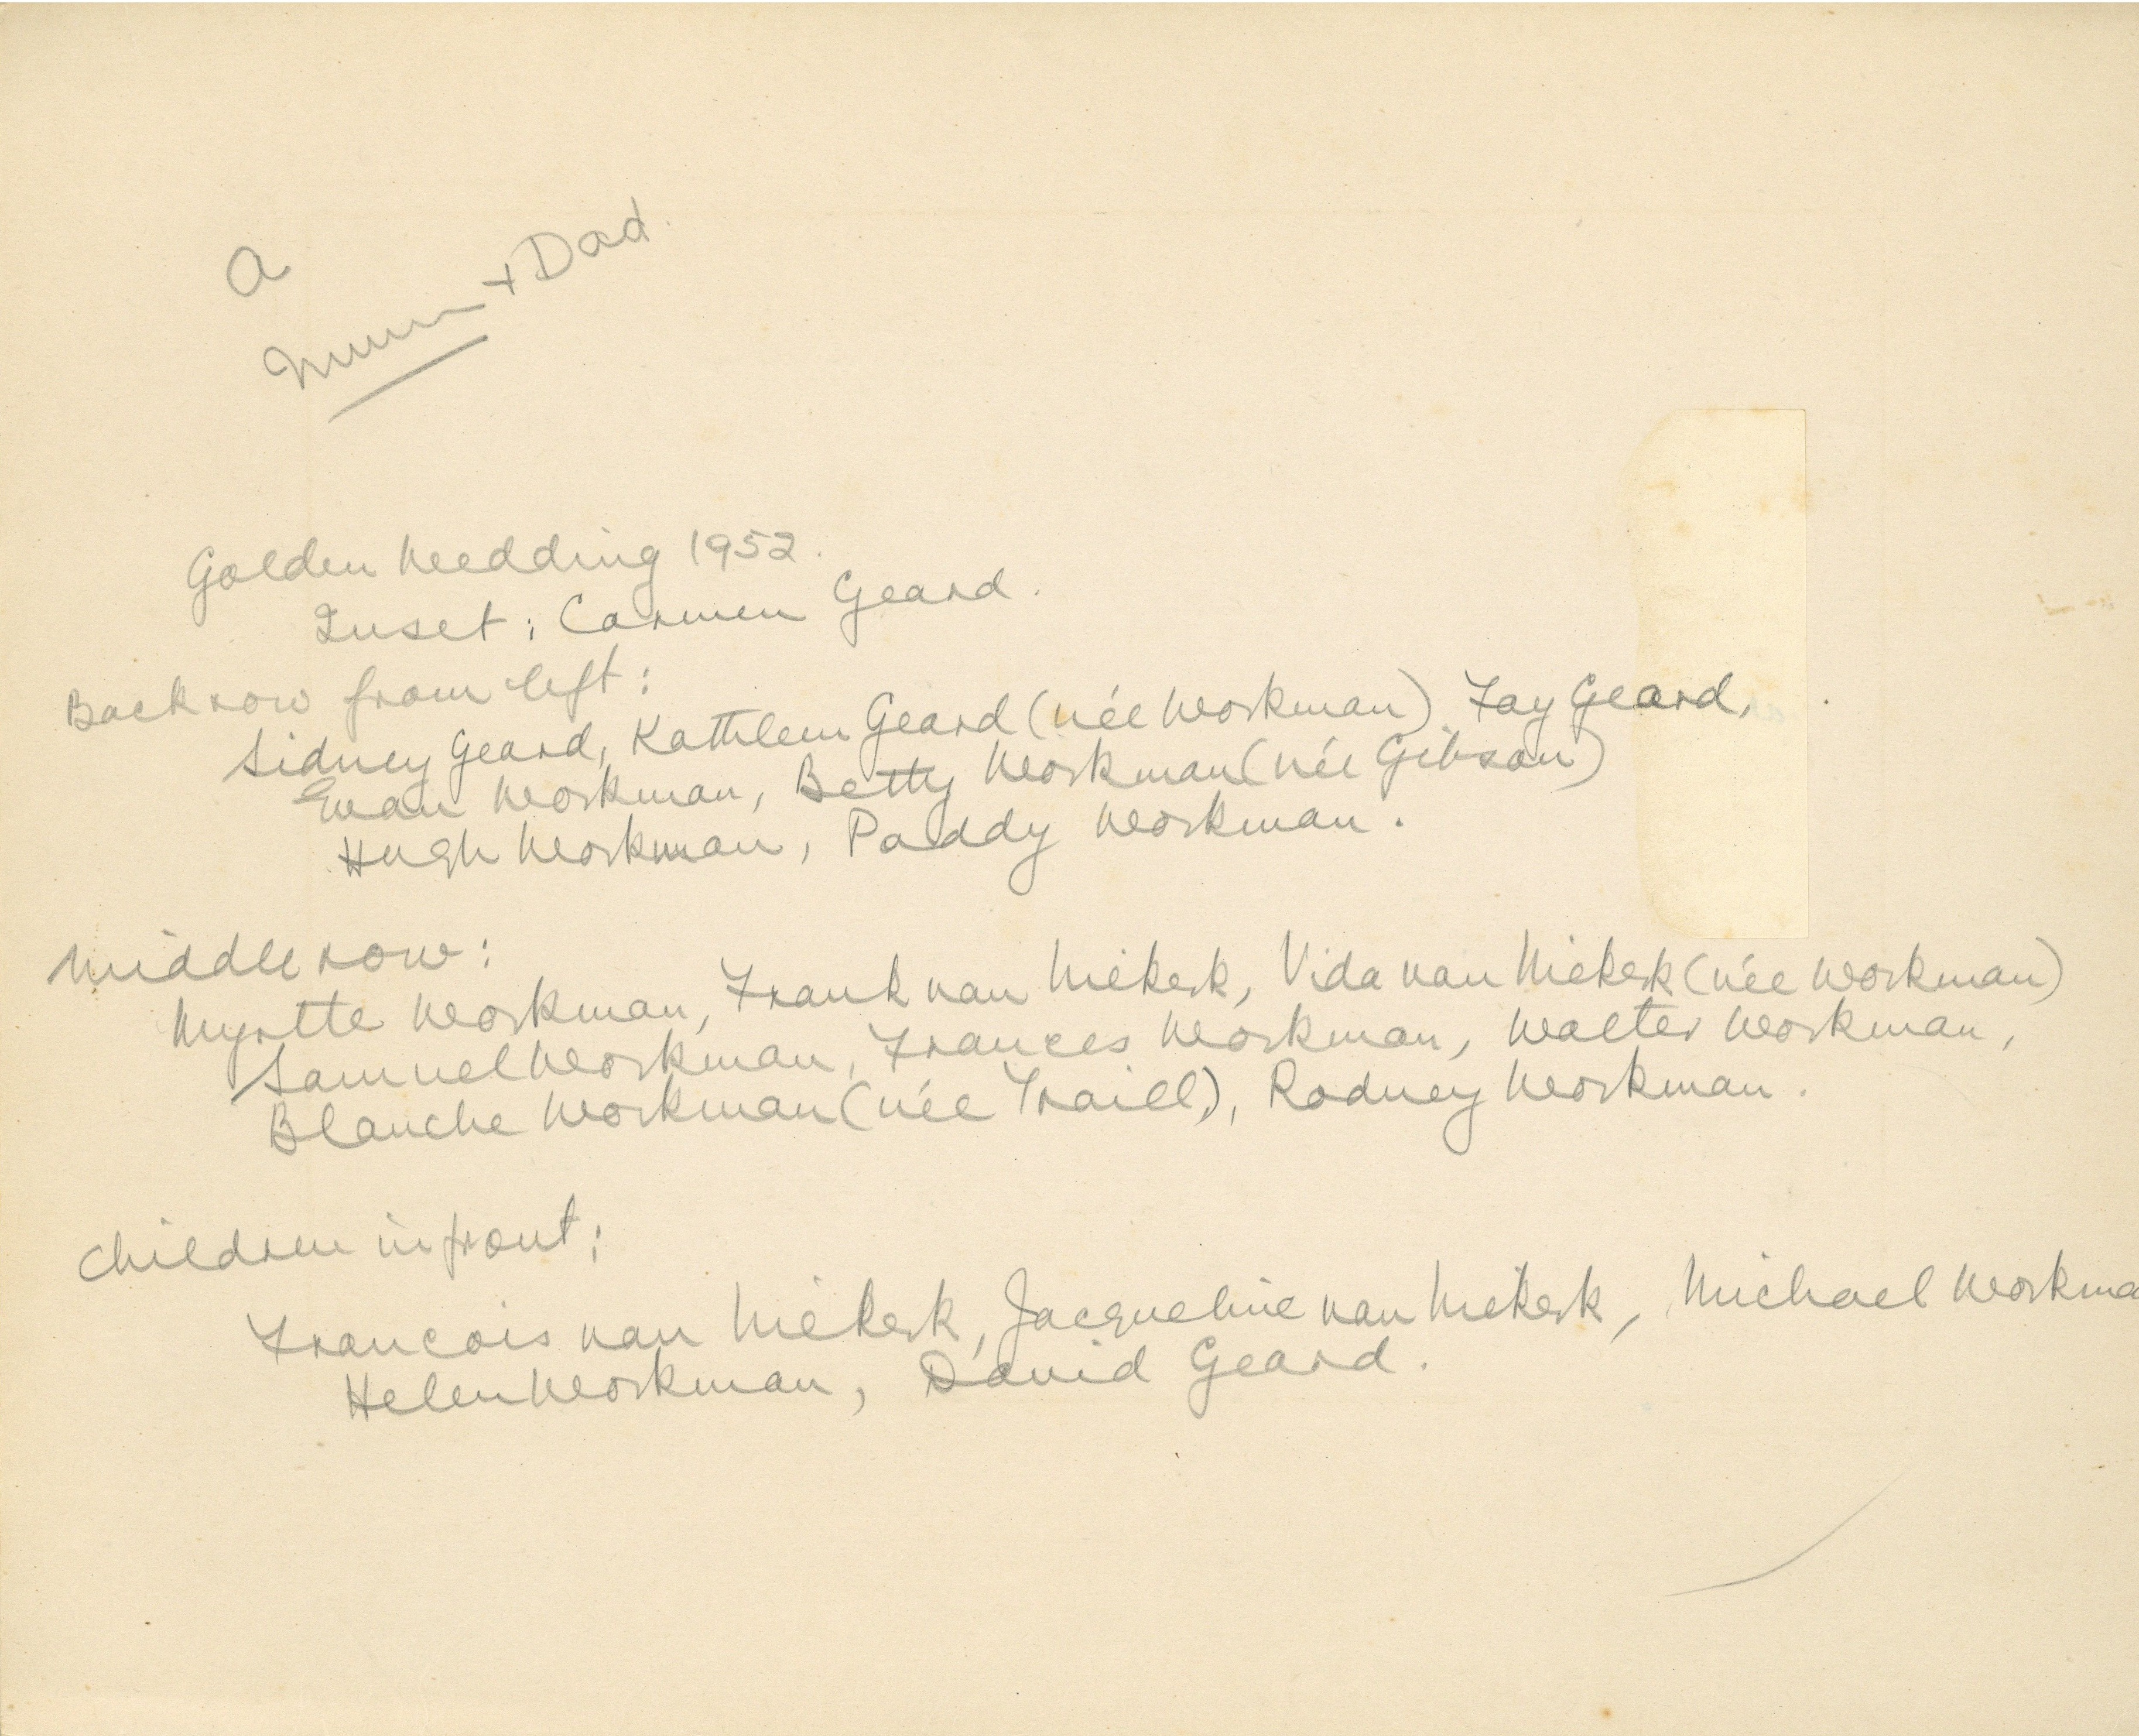 a
Mum + Dad.
Golden Wedding 1952.
Inset: Carmen Geard.
Back row from left:
Sidney Geard, Kathleen Geard (née Workman), Fay Geard,
Evan Workman, Betty Workman (née Gibson)
Hugh Workman, Paddy Workman.
Middle row:
Myrtle Workman, Frank van Niekerk, Vida van Niekerk (née Workman)
Samuel Workman, Frances Workman, Walter Workman,
Blanche Workman (née Traill), Rodney Workman.
Children in front:
Francois van Niekerk, Jacqueline van Niekerk, Michael Workma
Helen Workman, David Geard.